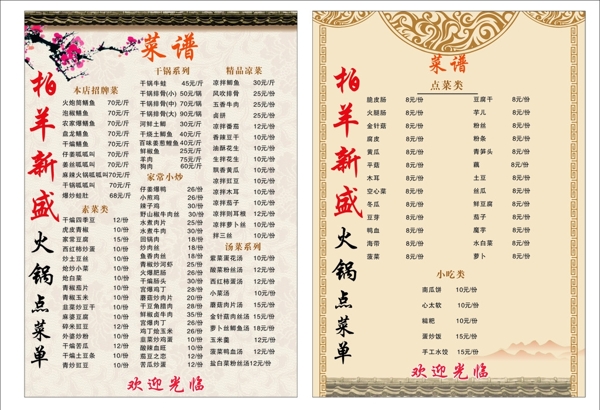 菜谱
柏羊新盛火锅点菜单
本店招牌菜
火炮筒鳝鱼 70元/斤
泡椒鳝鱼 70元/斤
农家爆鳝鱼 70元/斤
盘龙鳝鱼 70元/斤
干煸鳝鱼 70元/斤
仔姜呱呱叫 70元/斤
姜丝呱呱叫 70元/斤
麻辣火锅呱呱叫70元/斤
干锅呱呱叫 70元/斤
爆炒蛙肚 68元/斤
素菜类
干煸四季豆 12/份
虎皮青椒 10/份
家常豆腐 15/份
西红柿炒蛋 12/份
炒土豆丝 10/份
炝炒小菜 10/份
炝白菜 10/份
青椒茄片 10/份
青椒玉米 10/份
韭菜炒豆干 10/份
麻婆豆腐 10/份
碎米豇豆 12/份
外婆炒粉 10/份
干煸苦瓜 12/份
干煸土豆条 10/份
青炒豇豆 10/份
干锅系列
干锅牛蛙 45元/斤
干锅排骨(小) 50元/锅
干锅排骨(中) 70元/锅
干锅排骨(大) 90元/锅
河鲜土鲫 30元/斤
干烧土鲫 40元/斤
百味姜葱鲤鱼40元/斤
鲜椒鱼 25元/斤
羊肉 75元/斤
狗肉 60元/斤
家常小炒
仔姜爆鸭 26/份
小煎鸡 26/份
辣子鸡 30/份
野山椒牛肉丝 30/份
水煮肉片 25/份
水煮牛肉 30/份
回锅肉 18/份
炒肉丝 18/份
鱼香肉丝 18/份
青椒炒河虾 25/份
火爆肥肠 26/份
干煸肠头 30/份
宫爆鸡丁 28/份
蘑菇炒肉片 20/份
干豆角腊肉 28/份
鲜椒卤牛肉 35/份
宫爆肉丁 26/份
鸡丁烩玉米 26/份
韭菜炒鸡蛋 10/份
酸辣血旺 10/份
茄豆之恋 12/份
苦瓜炒蛋 12/份
精品凉菜
凉拌鲫鱼 30元/份
风吹排骨 25元/份
五香牛肉 25元/份
卤拼 25元/份
凉拌番茄 12元/份
香辣豆干 10元/份
油酥花生 10元/份
生拌花生 10元/份
飘香黄瓜 10元/份
凉拌豇豆 10元/份
凉拌木耳 10元/份
凉拌茄子 10元/份
凉拌则耳根 12元/份
凉拌萝卜丝 10元/份
拌三丝 10元/份
汤菜系列
紫菜蛋花汤 10元/份
酸菜粉丝汤 12元/份
西红柿蛋汤 12元/份
小菜汤 10元/份
蘑菇肉片汤 15元/份
金针菇肉丝汤 15元/份
萝卜丝鲫鱼汤 18元/份
玉米羹 12元/份
菠菜鸭血汤 12元/份
盐白菜粉丝汤12元/份
欢迎光临
菜谱
柏羊新盛火锅点菜单
点菜类
脆皮肠 8元/份 豆腐干 8元/份
火腿肠 8元/份 芋儿 8元/份
金针菇 8元/份 粉丝 8元/份
腐皮 8元/份 粉条 8元/份
黄瓜 8元/份 青笋头 8元/份
平菇 8元/份 藕 8元/份
木耳 8元/份 土豆 8元/份
空心菜 8元/份 丝瓜 8元/份
冬瓜 8元/份 鲜豆腐 8元/份
豆芽 8元/份 茄子 8元/份
鸭血 8元/份 魔芋 8元/份
海带 8元/份 水白菜 8元/份
菠菜 8元/份 萝卜 8元/份
小吃类
南瓜饼 10元/份
心太软 10元/份
糍粑 10元/份
蛋炒饭 15元/份
手工水饺 15元/份
欢迎光临